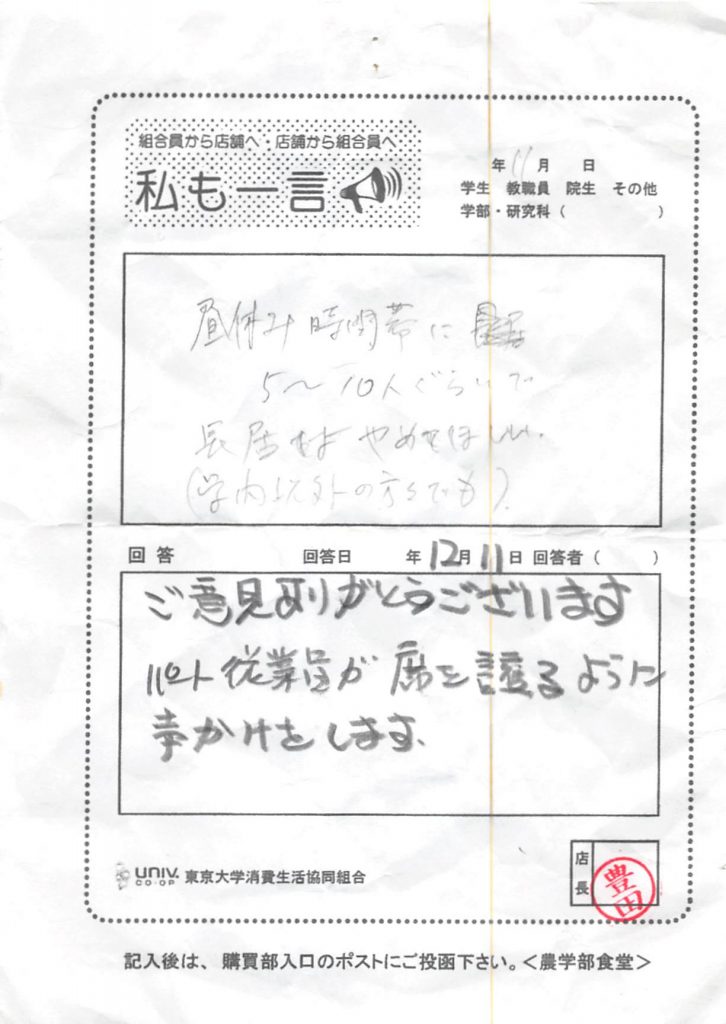 組合員から店舗へ・店舗から組合員へ
私も一言
年 11月 日
学生 教職員 院生 その他
学部・研究科( )
昼休み時間帯に
5〜10人ぐらいで
長居はやめてほしい。
(学内以外の方々でも)
回答 回答日 年12月11日 回答者( )
ご意見ありがとうございます
パート従業員が席を譲るように
声かけをします。
店長
豊田
UNIV. CO-OP 東京大学消費生活協同組合
記入後は、購買部入口のポストにご投函下さい。<農学部食堂>